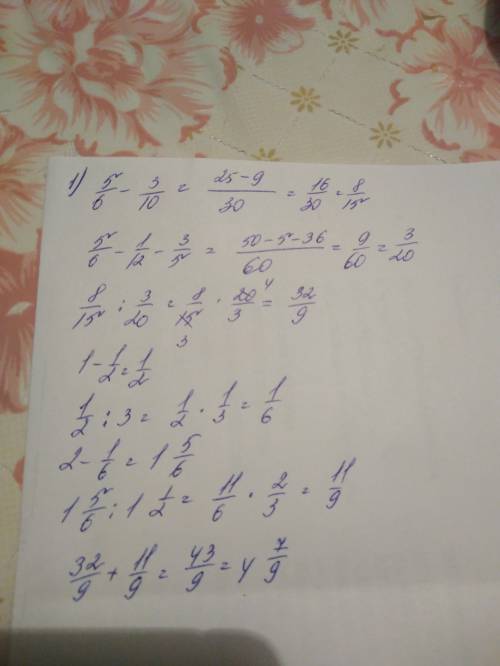 1) 5/6 - 3/10 = (25-9)/30 = 16/30 = 8/15
5/6 - 1/12 - 3/5 = (50-5-36)/60 = 9/60 = 3/20
8/15 : 3/20 = 8/15 3 · 20 4/3 = 32/9
1 - 1/2 = 1/2
1/2 : 3 = 1/2 · 1/3 = 1/6
2 - 1/6 = 1 5/6
1 5/6 : 1 1/2 = 11/6 · 2/3 = 11/9
32/9 + 11/9 = 43/9 = 4 7/9